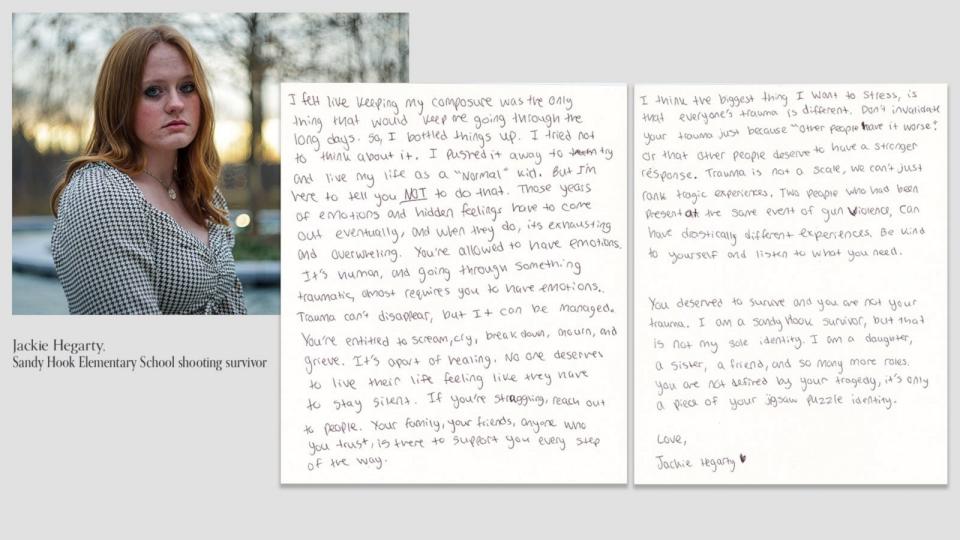 Jackie Hegarty,
Sandy Hook Elementary School shooting survivor
I felt like keeping my composure was the only
thing that would keep me going through the
long days. So, I bottled things up. I tried not
to think about it. I pushed it away to try
and live my life as a "Normal" kid. But I'm
here to tell you NOT to do that. Those years
of emotions and hidden feelings have to come
out eventually, and when they do, its exhausting
and overwhelming. You're allowed to have emotions.
It's human, and going through something
traumatic, almost requires you to have emotions.
Trauma can't disappear, but it can be managed.
You're entitled to scream, cry, break down, mourn, and
grieve. It's apart of healing. No one deserves
to live their life feeling like they have
to stay silent. If you're struggling, reach out
to people. Your family, your friends, anyone who
you trust, is there to support you every step
of the way.
I think the biggest thing I want to stress, is
that everyone's trauma is different. Don't invalidate
your trauma just because "other people have it worse".
Or that other people deserve to have a stronger
response. Trauma is not a scale, we can't just
rank tragic experiences. Two people who had been
present at the same event of gun violence, can
have drastically different experiences. Be kind
to yourself and listen to what you need.
You deserved to survive and you are not your
trauma. I am a sandy Hook survivor, but that
is not my sole identity. I am a daughter,
a sister, a friend, and so many more roles.
You are not defined by your tragedy, it's only
a piece of your jigsaw puzzle identity.
Love,
Jackie Hegarty ♥